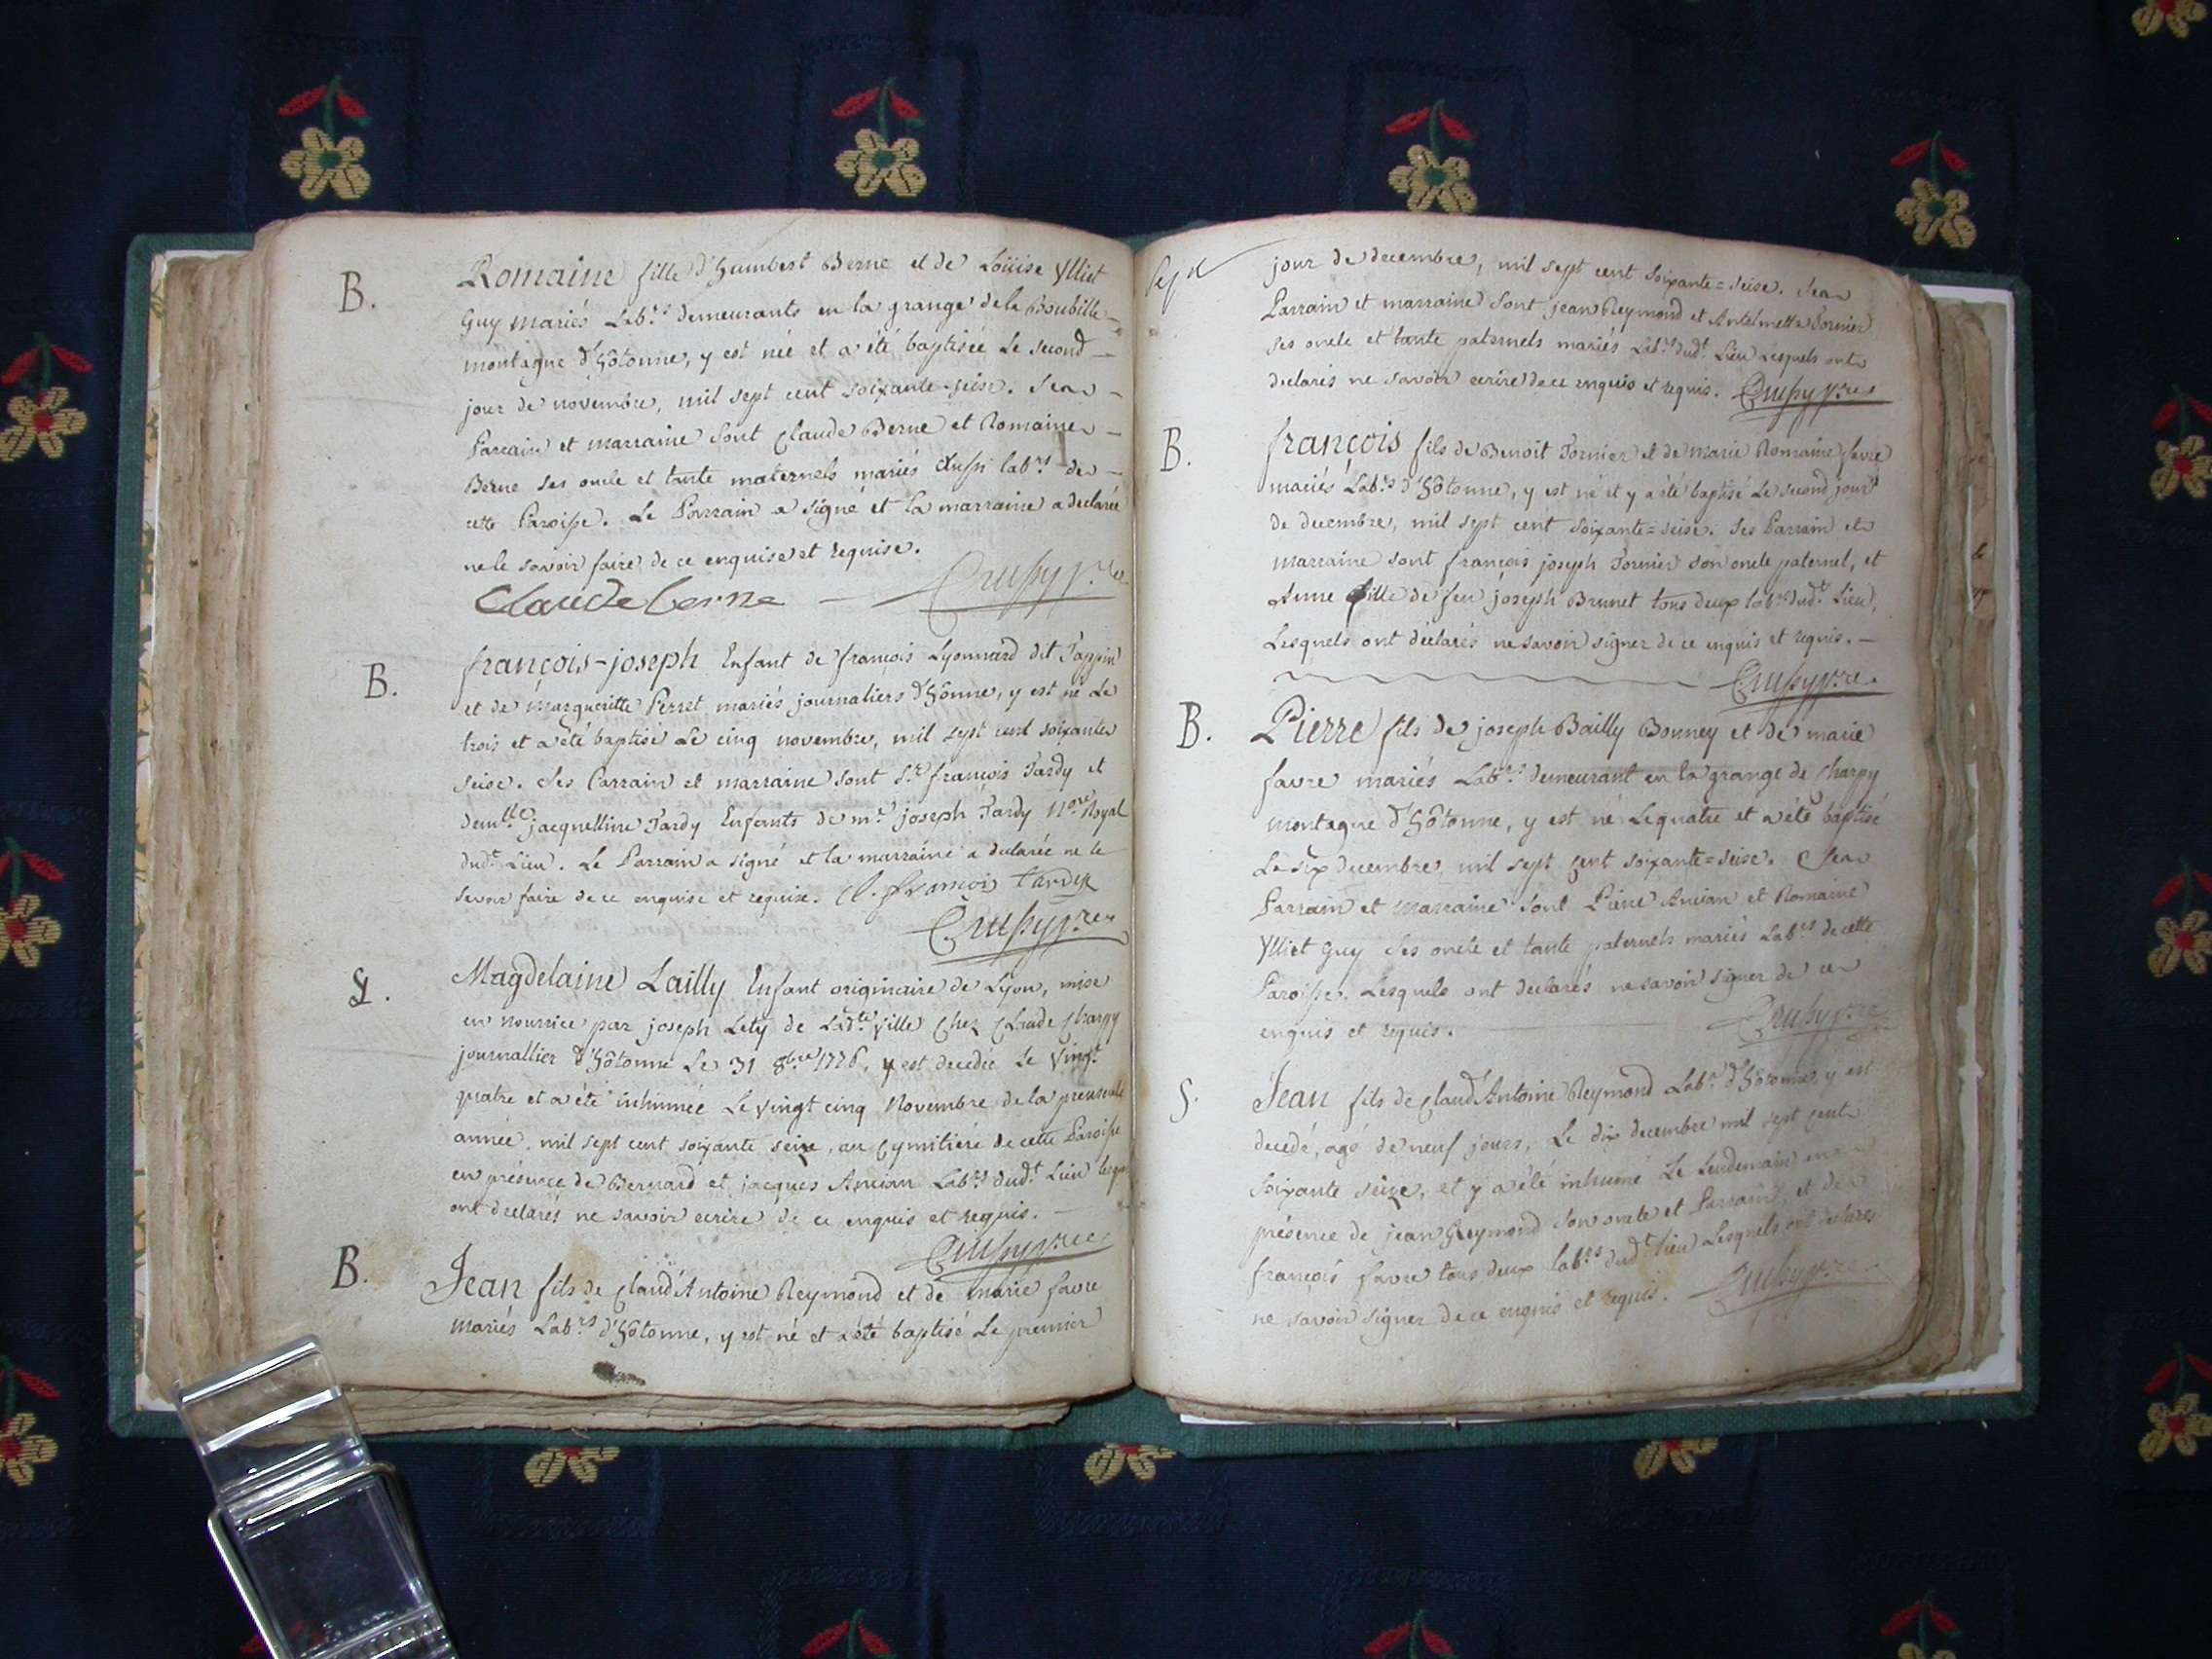 B.
Romaine fille d'humbert Berne et de Loüise Ylliet
Guy mariés Lab.rs demeurants en la grange de la Boubille
montagne d'hôtonne, y est née et a été baptisée Le second
jour de novembre, mil sept cent soixante-seise. Ses
Parrain et marraine sont Claude Berne et Romaine
Berne ses oncle et tante maternels mariés aussi lab.rs de
cette Paroisse. Le Parrain a signé et la marraine a declarée
ne le savoir faire de ce enquise et requise.
Claude berne
B.
françois-joseph Enfant de françois Lyonnard dit Tappin
et de Margueritte Perret mariés journaliers d'hônne, y est né Le
trois et a été baptisé Le cinq novembre, mil sept cent soixante
seise. Ses Parrain et marraine sont Sr françois Tardy et
demlle jacquelline Tardy Enfants de me joseph Tardy Nore Royal
dudt Lieu. Le Parrain a signé et la marraine a declarée ne le
savoir faire de ce enquise et requise. françois tardy
S.
Magdelaine Lailly Enfant originaire de Lyon, mise
en nourrice par joseph Lety de Ladte ville chez Claude Charpy
journallier d'hôtonne Le 31 8bre 1776, y est decedée Le vingt
quatre et a été inhumée Le vingt cinq Novembre de la presente
année mil sept cent soixante seize, au cymitiére de cette Paroisse
en présence de Bernard et jacques Ancian Lab.rs dudt Lieu
ont declarés ne savoir ecrire de ce enquis et requis.
B.
Jean fils de Claud'Antoine Reymond et de marie favre
mariés Lab.rs d'hôtonne, y est né et a été baptisé Le premier
jour de decembre, mil sept cent soixante=seise. Ses
Parrain et marraine sont jean Reymond et Antelmette Tornier
ses oncle et tante paternels mariés Lab.rs dudt Lieu Lesquels ont
declarés ne savoir ecrire de ce enquis et requis.
B.
françois fils de Benoit Tornier et de marie Romaine favre
mariés Lab.rs d'hôtonne, y est né et y a été baptisé Le second jour
de decembre, mil sept cent soixante=seise. Ses Parrain et
marraine sont françois joseph Tornier son oncle paternel, et
Anne fille de feu joseph Brunet tous deux lab.rs dudt Lieu,
Lesquels ont déclarés ne savoir signer de ce enquis et requis.
B.
Pierre fils de joseph Bailly Bonney et de marie
favre mariés Lab.rs demeurant en la grange de Charpy
montagne d'hôtonne, y est né Le quatre et a été baptisé
Le six decembre, mil sept cent soixante=seise. Ses
Parrain et marraine sont Pierre Ancian et Romaine
Ylliet Guy ses oncle et tante paternels mariés Lab.rs de cette
Paroisse, Lesquels ont declarés ne savoir signer de ce
enquis et requis.
S.
Jean fils de Claud'Antoine Reymond Lab.r d'hôtonne, y est
decedé, agé de neuf jours, Le dix decembre mil sept cent
soixante seize, et y a été inhumé Le lendemain en
présence de jean Reymond son oncle et Parrain, et de
françois favre tous deux lab.rs dudt lieu Lesquels ont declarés
ne savoir signer de ce enquis et requis.